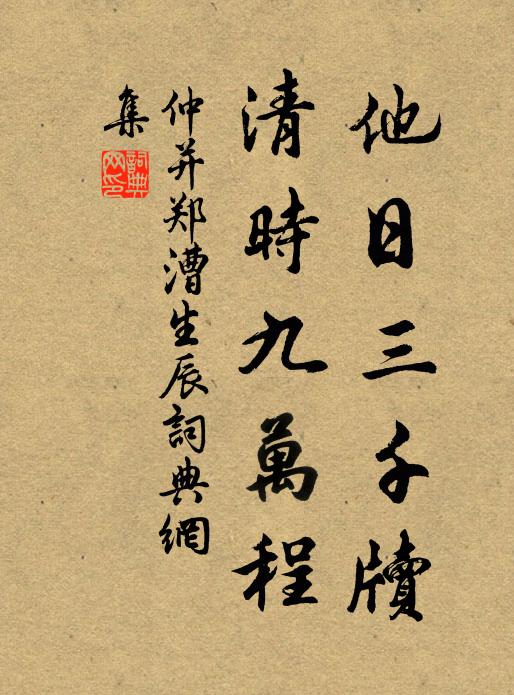 他日三千牘
清時九萬程
仲并郑漕生辰詞典網
集
詞典
网印